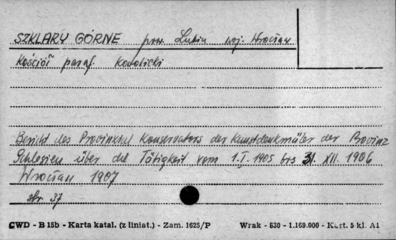 SZKLARY GÓRNE pow. Lubin woj. Wrocław
Kościół paraf. Katolicki
Bericht des Provinzial Konservators der Kunstdenkmäler der Provinz
Schlesien über die Tätigkeit vom 1.I.1905 bis 31.XII.1906
Wrocław 1907
str. 37
CWD - B 15b - Karta katal. (z liniat.) - Zam. 1625/P Wrak - 530 - 1.169.000 - Kart. 5 kl. A1